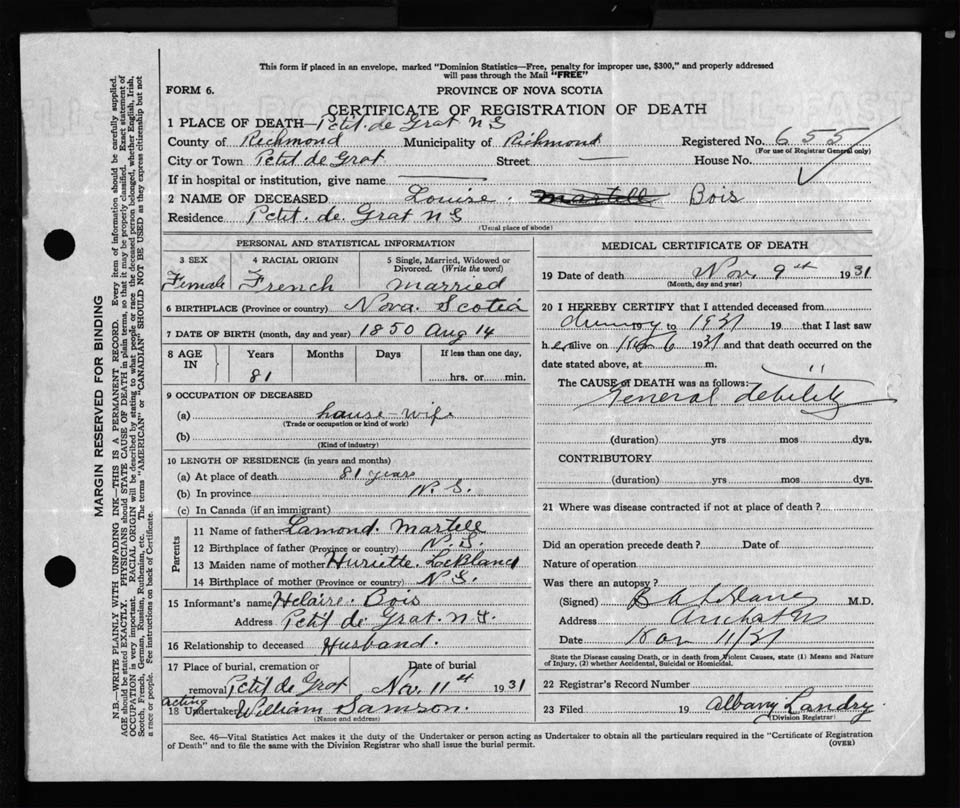 This form if placed in an envelope, marked "Dominion Statistics—Free, penalty for improper use, $300," and properly addressed
will pass through the Mail "FREE"
FORM 6. PROVINCE OF NOVA SCOTIA
CERTIFICATE OF REGISTRATION OF DEATH
1 PLACE OF DEATH—Petit de Grat N S
County of Richmond Municipality of Richmond Registered No. 655
(For use of Registrar General only)
City or Town Petit de Grat Street — House No.
If in hospital or institution, give name —
2 NAME OF DECEASED Louise Martell Bois
Residence Petit de Grat N S
(Usual place of abode)
PERSONAL AND STATISTICAL INFORMATION
3 SEX 4 RACIAL ORIGIN 5 Single, Married, Widowed or Divorced. (Write the word)
Female French Married
6 BIRTHPLACE (Province or country) Nova Scotia
7 DATE OF BIRTH (month, day and year) 1850 Aug 14
8 AGE IN Years Months Days If less than one day,
81 hrs. or min.
9 OCCUPATION OF DECEASED
(a) house-wife
(Trade or occupation or kind of work)
(b)
(Kind of industry)
10 LENGTH OF RESIDENCE (in years and months)
(a) At place of death 81 years
(b) In province N. S.
(c) In Canada (if an immigrant)
Parents
11 Name of father Lamond Martell
12 Birthplace of father (Province or country) N. S.
13 Maiden name of mother Huriette LeBlanc
14 Birthplace of mother (Province or country) N S.
15 Informant's name Helaire Bois
Address Petit de Grat N. S.
16 Relationship to deceased Husband.
17 Place of burial, cremation or Date of burial
removal Petit de Grat Nov. 11th 1931
acting
18 Undertaker William Samson.
(Name and address)
MEDICAL CERTIFICATE OF DEATH
19 Date of death Nov. 9th 1931
(Month, day and year)
20 I HEREBY CERTIFY that I attended deceased from
19 to 1931 19 that I last saw
her alive on Nov 6 1931 and that death occurred on the
date stated above, at m.
The CAUSE of DEATH was as follows:
General debility
(duration) yrs mos dys.
CONTRIBUTORY
(duration) yrs mos dys.
21 Where was disease contracted if not at place of death?
Did an operation precede death? Date of
Nature of operation
Was there an autopsy?
(Signed) M.D.
Address
Date Nov 11/31
State the Disease causing Death, or in death from Violent Causes, state (1) Means and Nature
of Injury, (2) whether Accidental, Suicidal or Homicidal.
22 Registrar's Record Number
23 Filed 19 Albany Landry
(Division Registrar)
Sec. 46—Vital Statistics Act makes it the duty of the Undertaker or person acting as Undertaker to obtain all the particulars required in the "Certificate of Registration
of Death" and to file the same with the Division Registrar who shall issue the burial permit. (OVER)
MARGIN RESERVED FOR BINDING
N.B.—WRITE PLAINLY WITH UNFADING INK—THIS IS A PERMANENT RECORD. Every item of information should be carefully supplied.
AGE should be stated EXACTLY. PHYSICIANS should STATE CAUSE OF DEATH in plain terms, so that it may be properly classified. Exact statement of
OCCUPATION is very important. RACIAL ORIGIN will be described by stating to what people or race the deceased person belonged, whether English, Irish,
Scotch, French, German, Russian, Ruthenian, etc. The terms "AMERICAN" or "CANADIAN" SHOULD NOT BE USED as they express citizenship but not
a race or people. See instructions on back of Certificate.